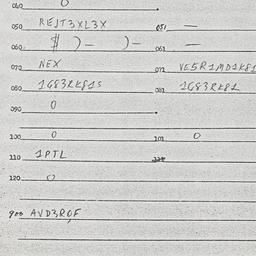 040 0
050 REJT3XL3X 051 —
060 $ )— )— 061 —
070 NEX 071 VE5R1MD1K81
080 1G83RK81S 081 1G83RK81
090 0
100 0 101 0
110 1PTL
120 0
900 AVD3ROF